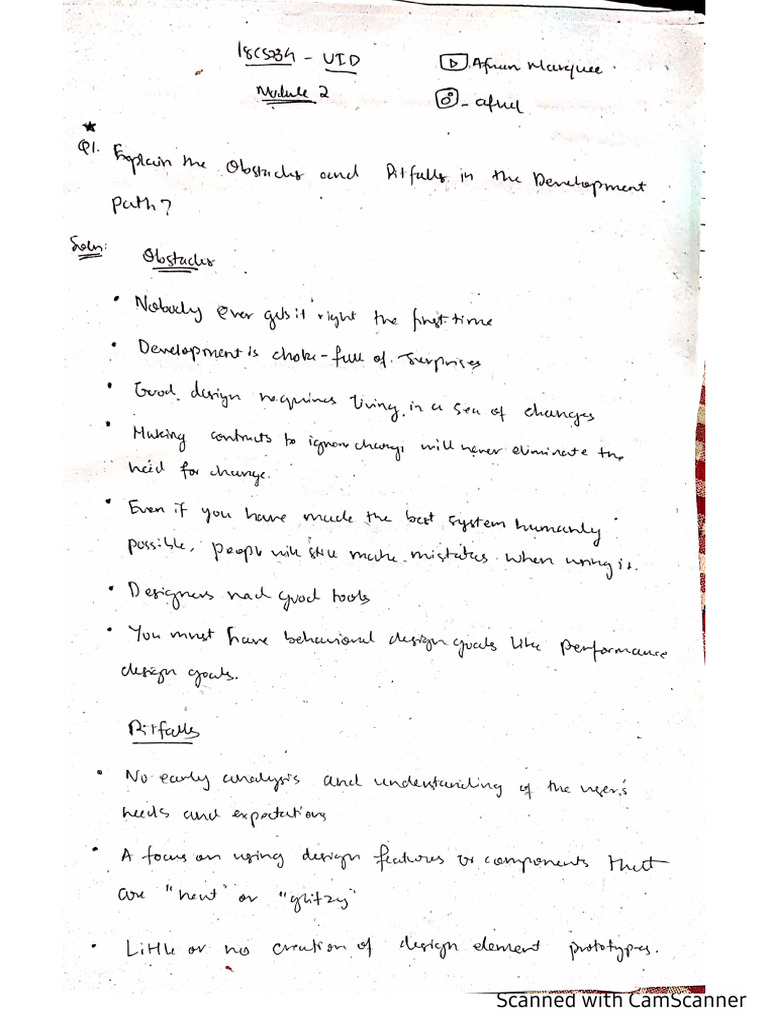 18CS734 - UID
Afnan Marquee
Module 2
- afnd
Q1. Explain the Obstacles and Pitfalls in the Development
Path?
Soln:
Obstacles
• Nobody ever gets it right the first time
• Development is chok-full of surprises
• Good design requires living in a sea of changes
• Making contracts to ignore change will never eliminate the
need for change.
• Even if you have made the best system humanly
possible, people will still make mistakes when using it.
• Designers need good tools
• You must have behavioral design goals like performance
design goals.
Pitfalls
• No early analysis and understanding of the user's
needs and expectations
• A focus on using design features or components that
are "neat" or "glitzy"
• Little or no creation of design element prototypes.
Scanned with CamScanner